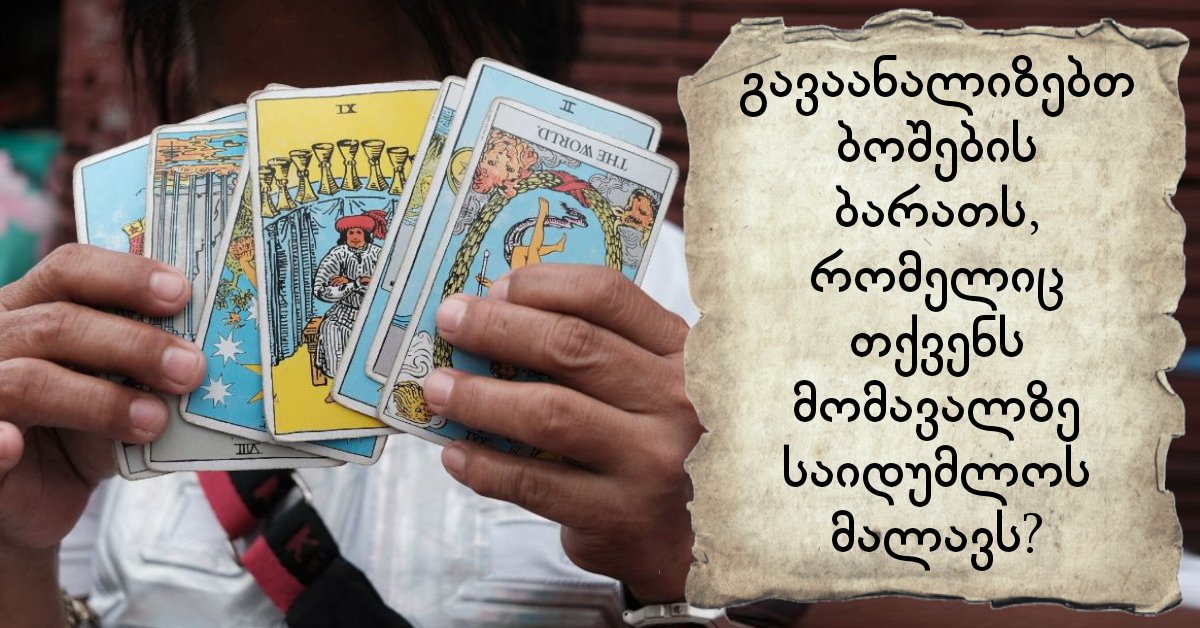 XI
II
THE WORLD.
VIII
გავაანალიზებთ
ბოშების
ბარათს,
რომელიც
თქვენს
მომავალზე
საიდუმლოს
მალავს?